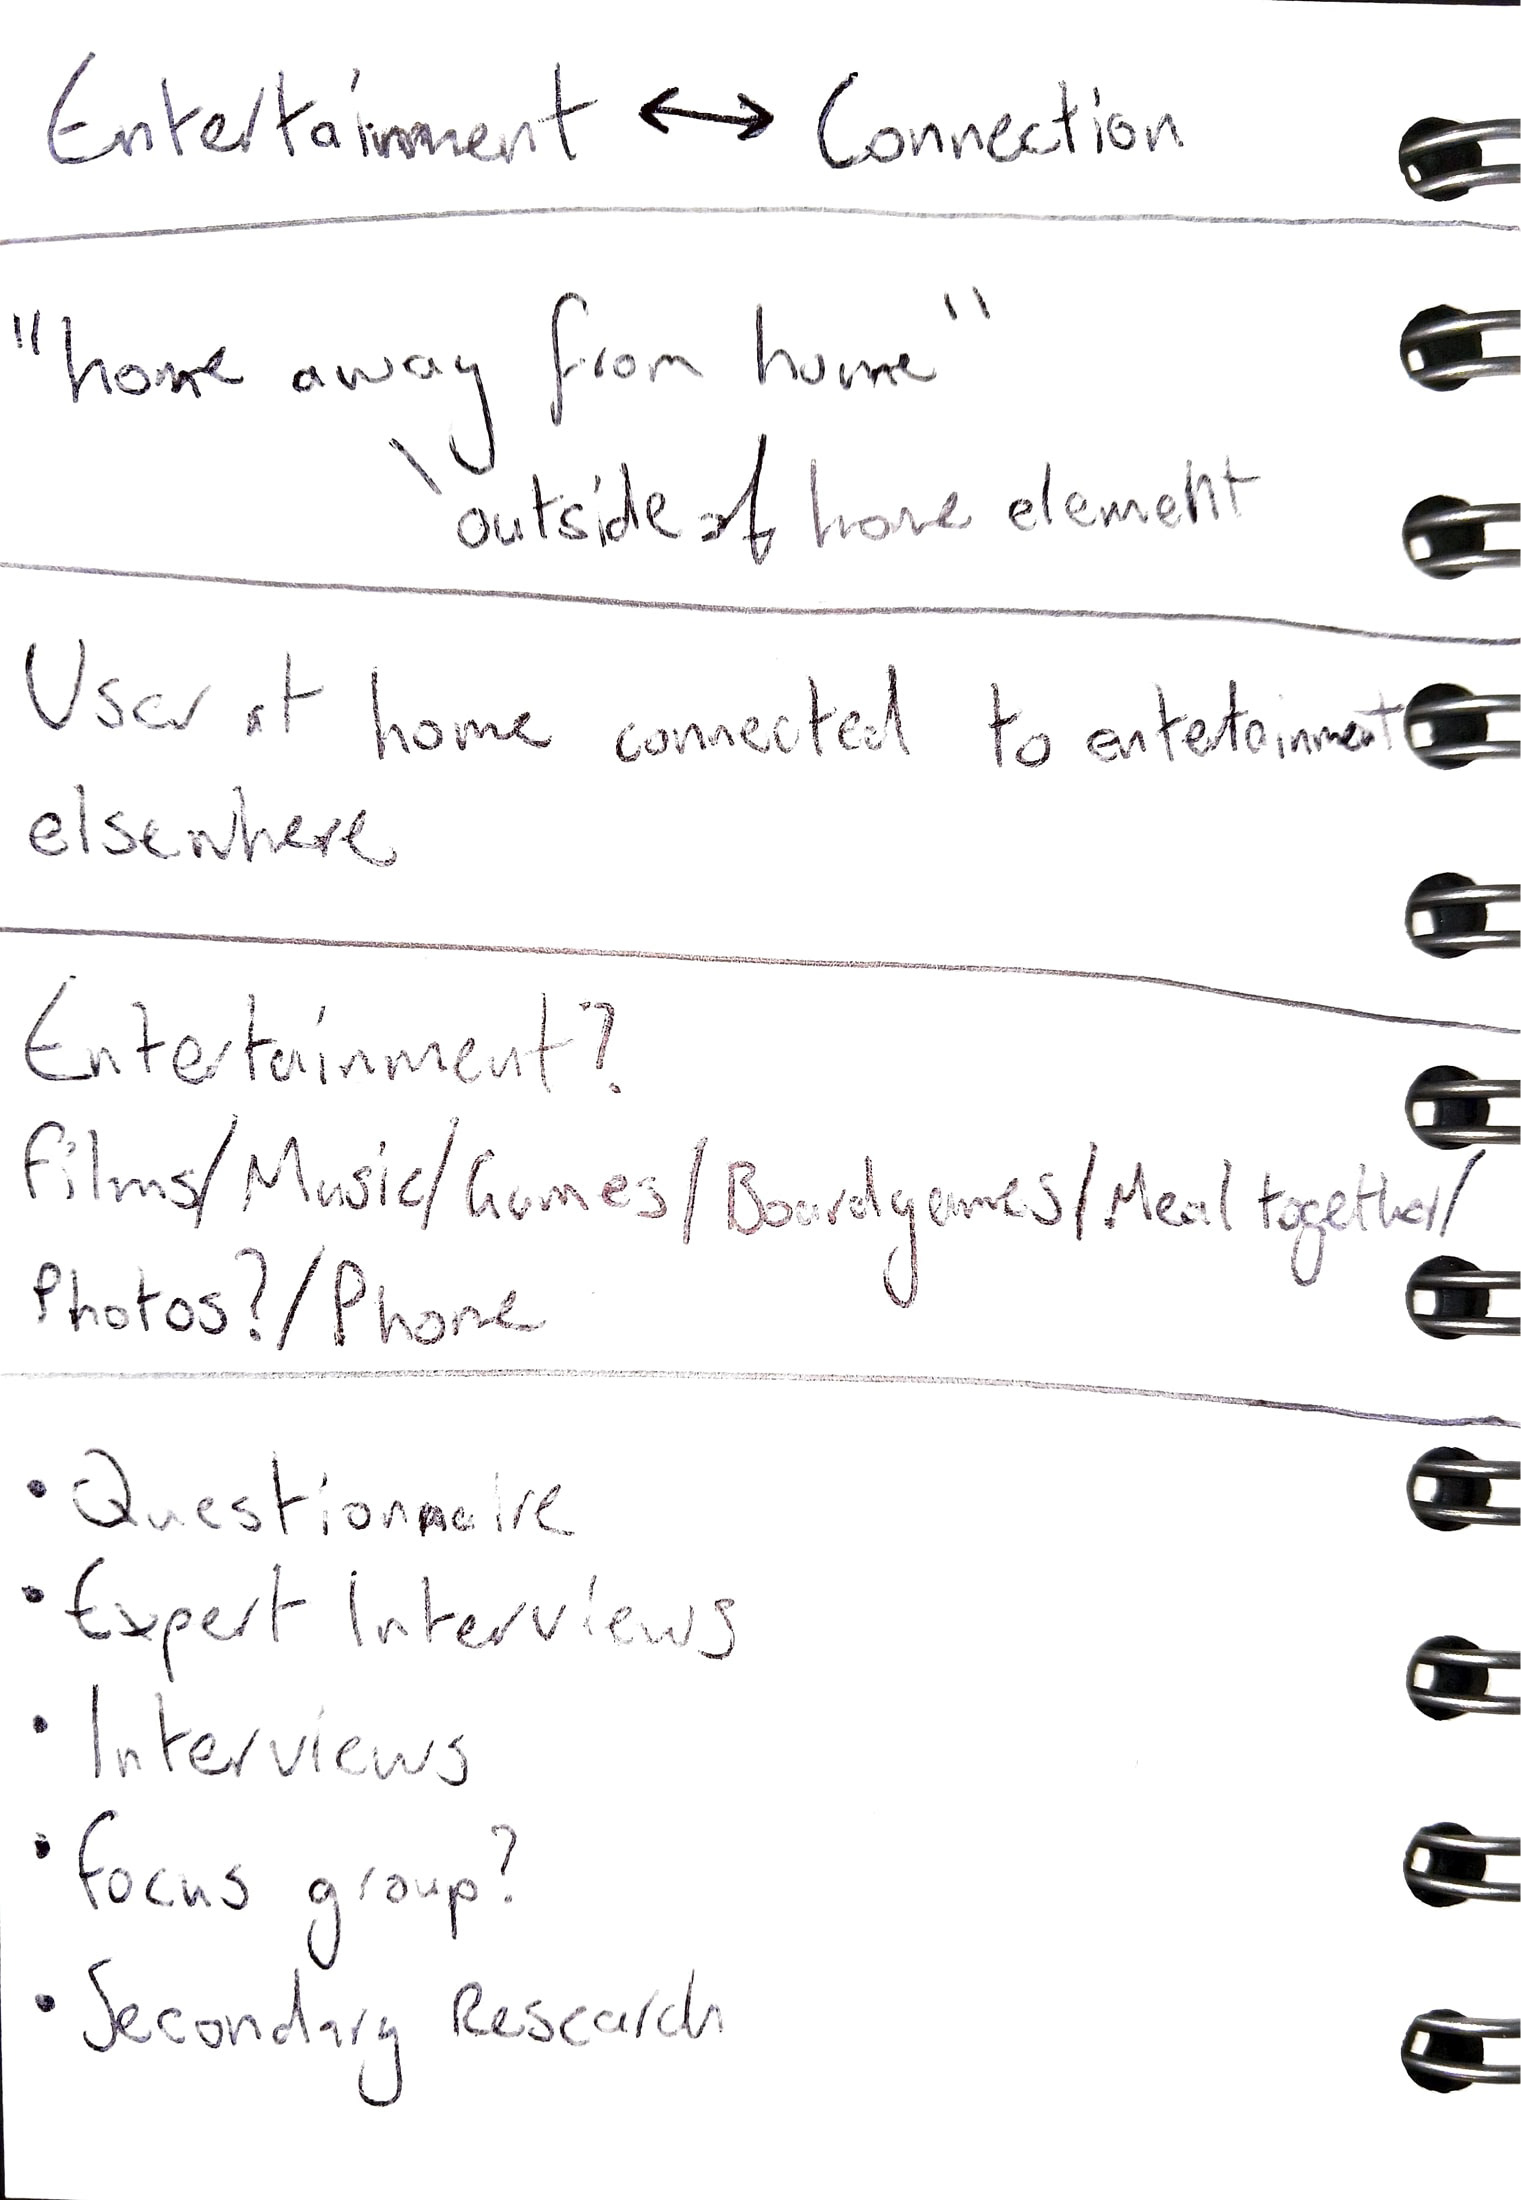 Entertainment ↔ Connection
"home away from home"
\ outside of home element
User at home connected to entertainment
elsewhere
Entertainment?
Films/Music/Games/Boardgames/Meal together/
Photos?/Phone
• Questionnaire
• Expert Interviews
• Interviews
• Focus group?
• Secondary Research